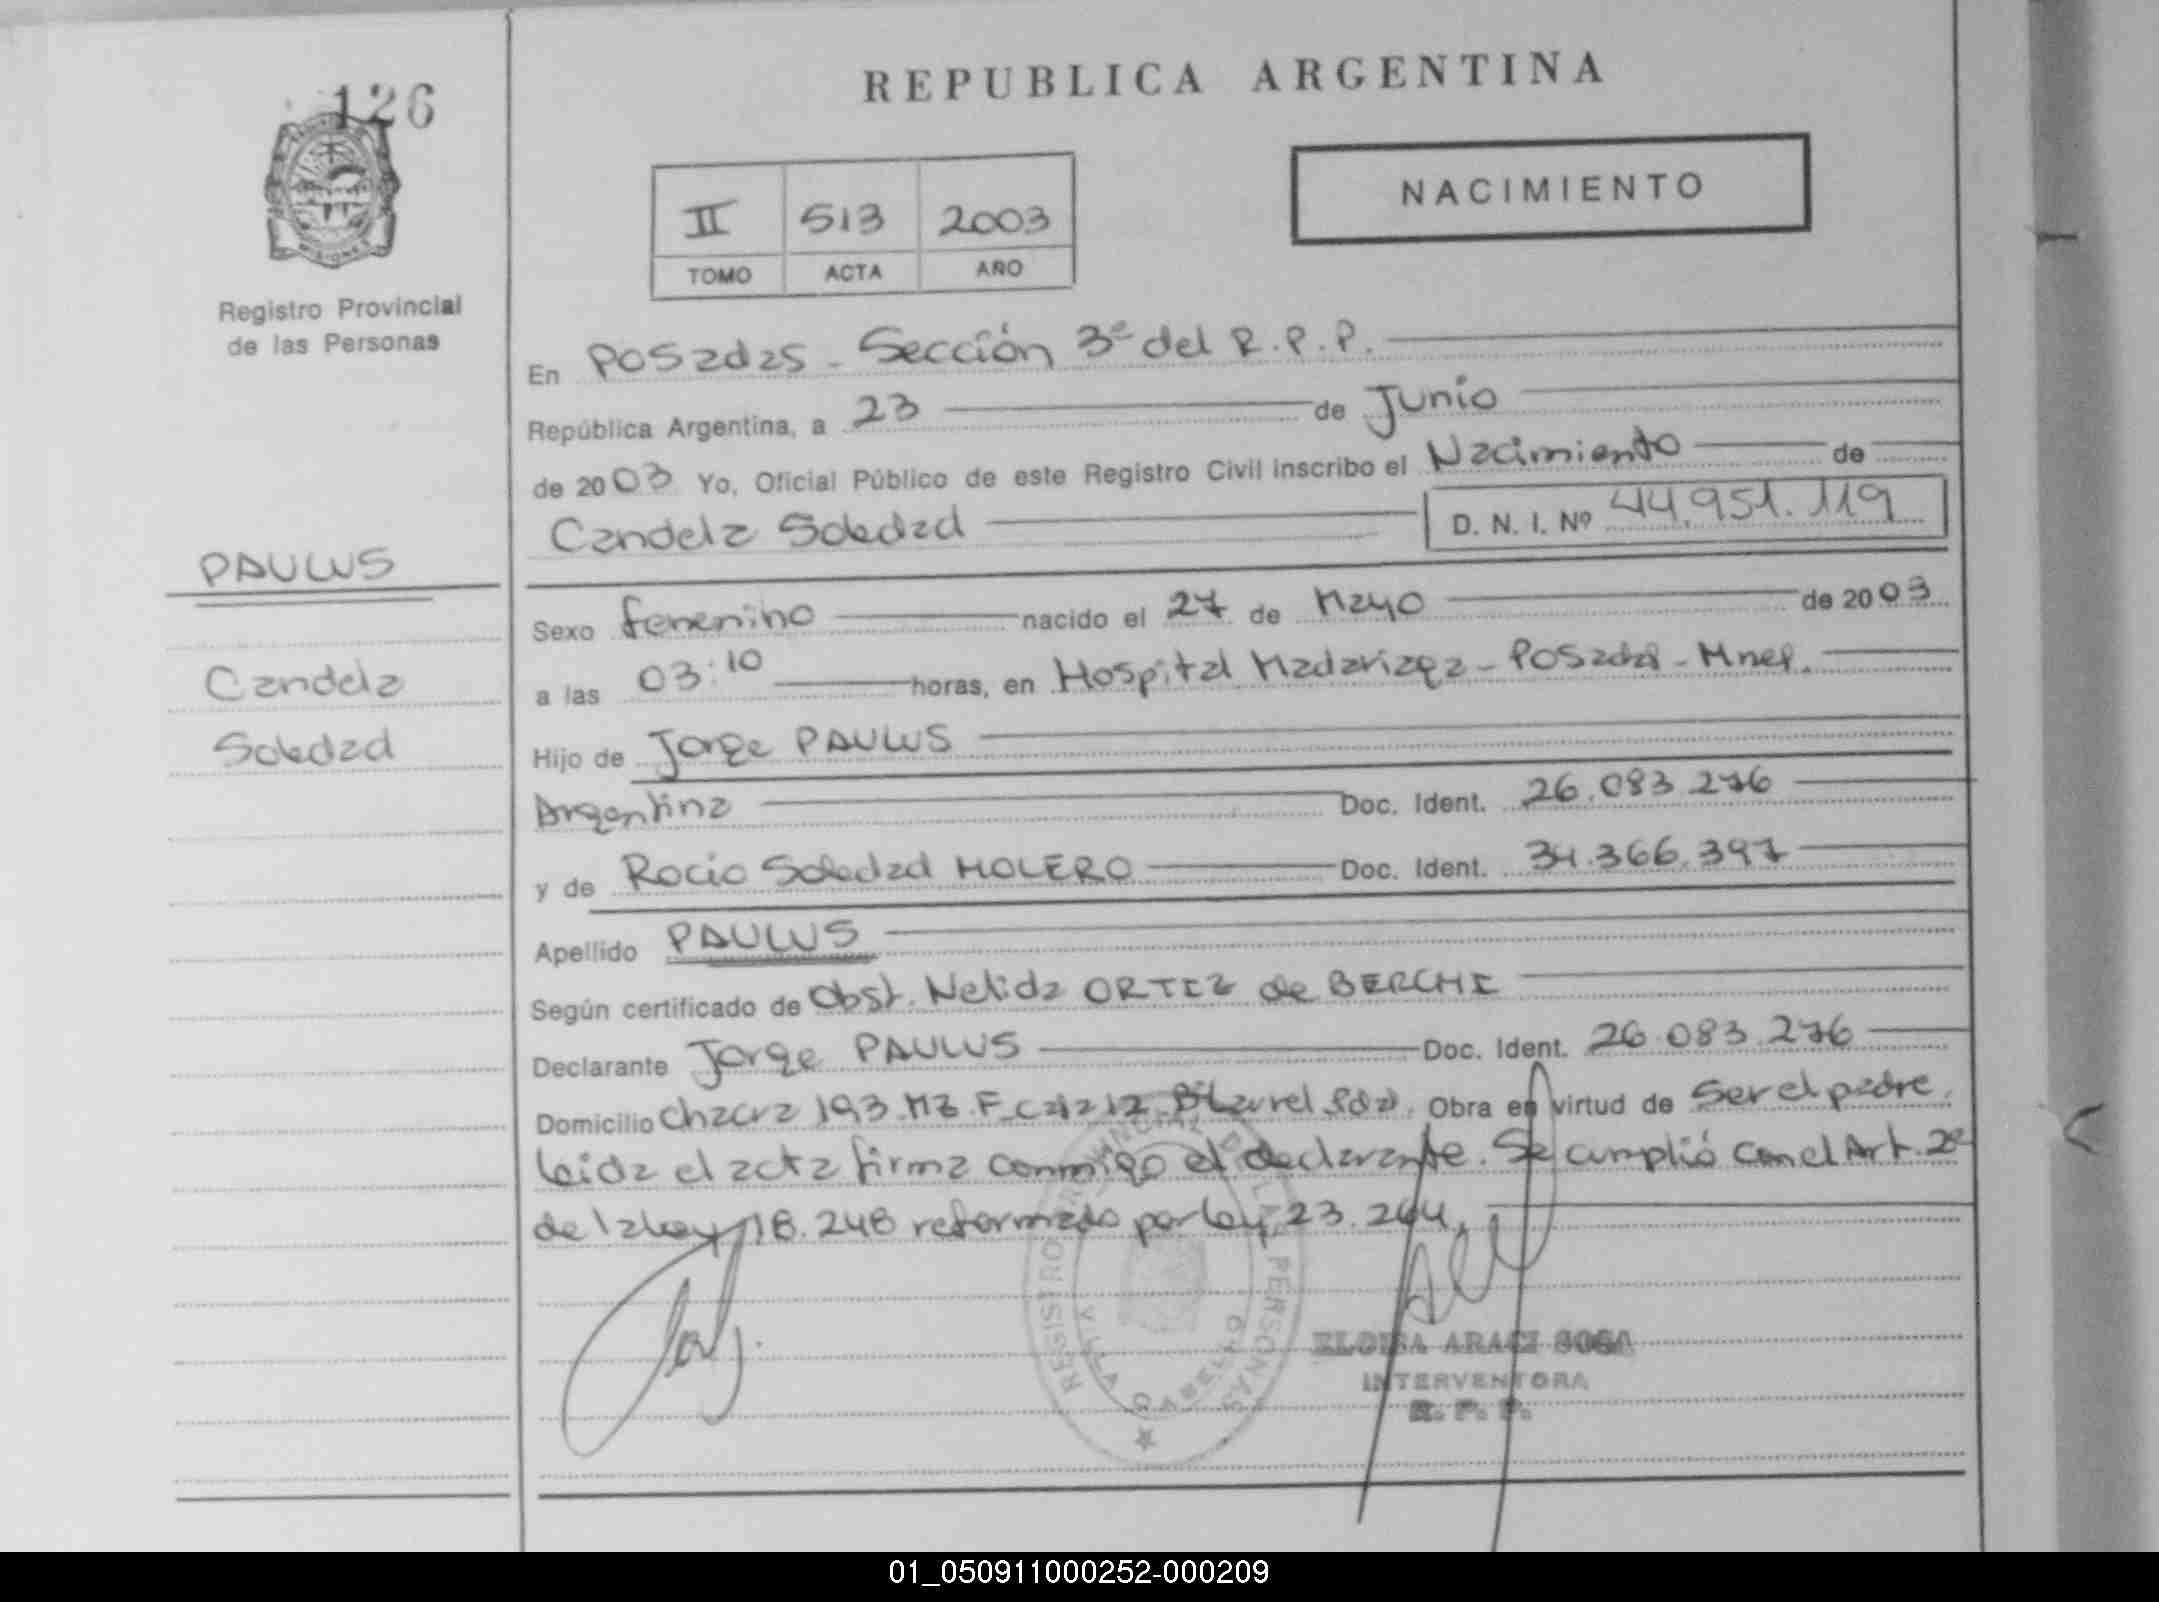 126
REPUBLICA ARGENTINA
NACIMIENTO
II 513 2003
TOMO ACTA AÑO
Registro Provincial
de las Personas
En Posadas - Sección 3ª del R.P.P.
República Argentina, a 23 de Junio
de 2003 Yo, Oficial Público de este Registro Civil inscribo el Nacimiento de
Candela Soledad D. N. I. Nº 44.951.119
PAULUS
Candela
Soledad
Sexo femenino nacido el 27 de Mayo de 2003
a las 03:10 horas, en Hospital Madariaga - Posadas - Mnes.
Hijo de Jorge PAULUS
Argentina Doc. Ident. 26.083.276
y de Rocio Soledad MOLERO Doc. Ident. 34.366.397
Apellido PAULUS
Según certificado de Obst. Nelida ORTIZ de BERCHI
Declarante Jorge PAULUS Doc. Ident. 26.083.276
Domicilio Chacra 193 Mz. F casa 12 Bº Laurel Pdas. Obra en virtud de Ser el padre.
Leida el acta firma conmigo el declarante. Se cumplió con el Art. 2º
de la ley 18.248 reformado por ley 23.264.
REGISTRO PROVINCIAL DE LAS PERSONAS
ELOISA ARACI SOSA
INTERVENTORA
R. P. P.
01_050911000252-000209